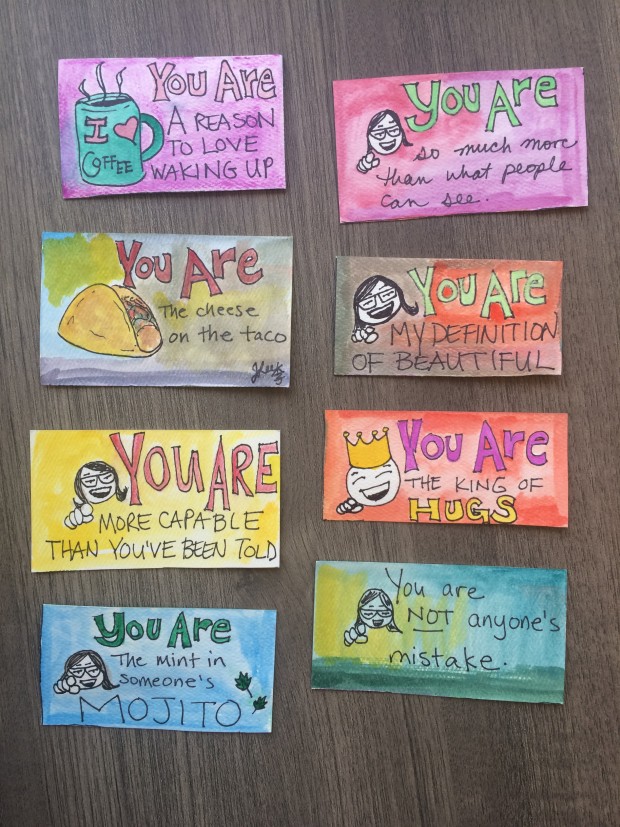 I ♥
COFFEE
You Are
A REASON
TO LOVE
WAKING UP
You Are
so much more
than what people
can see.
You Are
The cheese
on the taco
You Are
MY DEFINITION
OF BEAUTIFUL
YOU ARE
MORE CAPABLE
THAN YOU'VE BEEN TOLD
You Are
THE KING OF
HUGS
You Are
The mint in
someone's
MOJITO
You are
NOT anyone's
mistake.